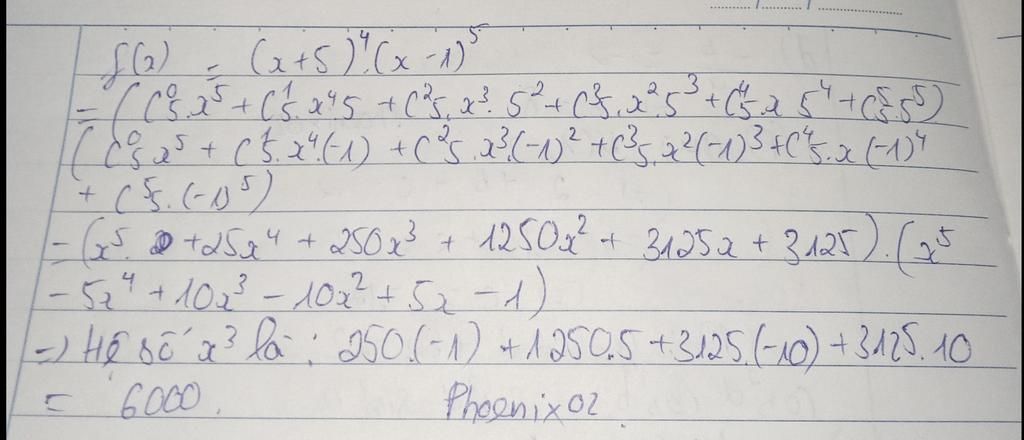 f(x) = (x+5)⁴.(x-1)⁵
= (C⁰₅.x⁵ + C¹₅.x⁴5 + C²₅.x³.5² + C³₅.x²5³ + C⁴₅.x 5⁴ + C⁵₅.5⁵)
(C⁰₅x⁵ + C¹₅.x⁴.(-1) + C²₅.x³.(-1)² + C³₅.x²(-1)³ + C⁴₅.x(-1)⁴
+ C⁵₅.(-1)⁵)
= (x⁵ + 25x⁴ + 250x³ + 1250x² + 3125x + 3125).(x⁵
- 5x⁴ + 10x³ - 10x² + 5x - 1)
=) Hệ số x³ là: 250.(-1) + 1250.5 + 3125.(-10) + 3125.10
= 6000.
Phoenix02